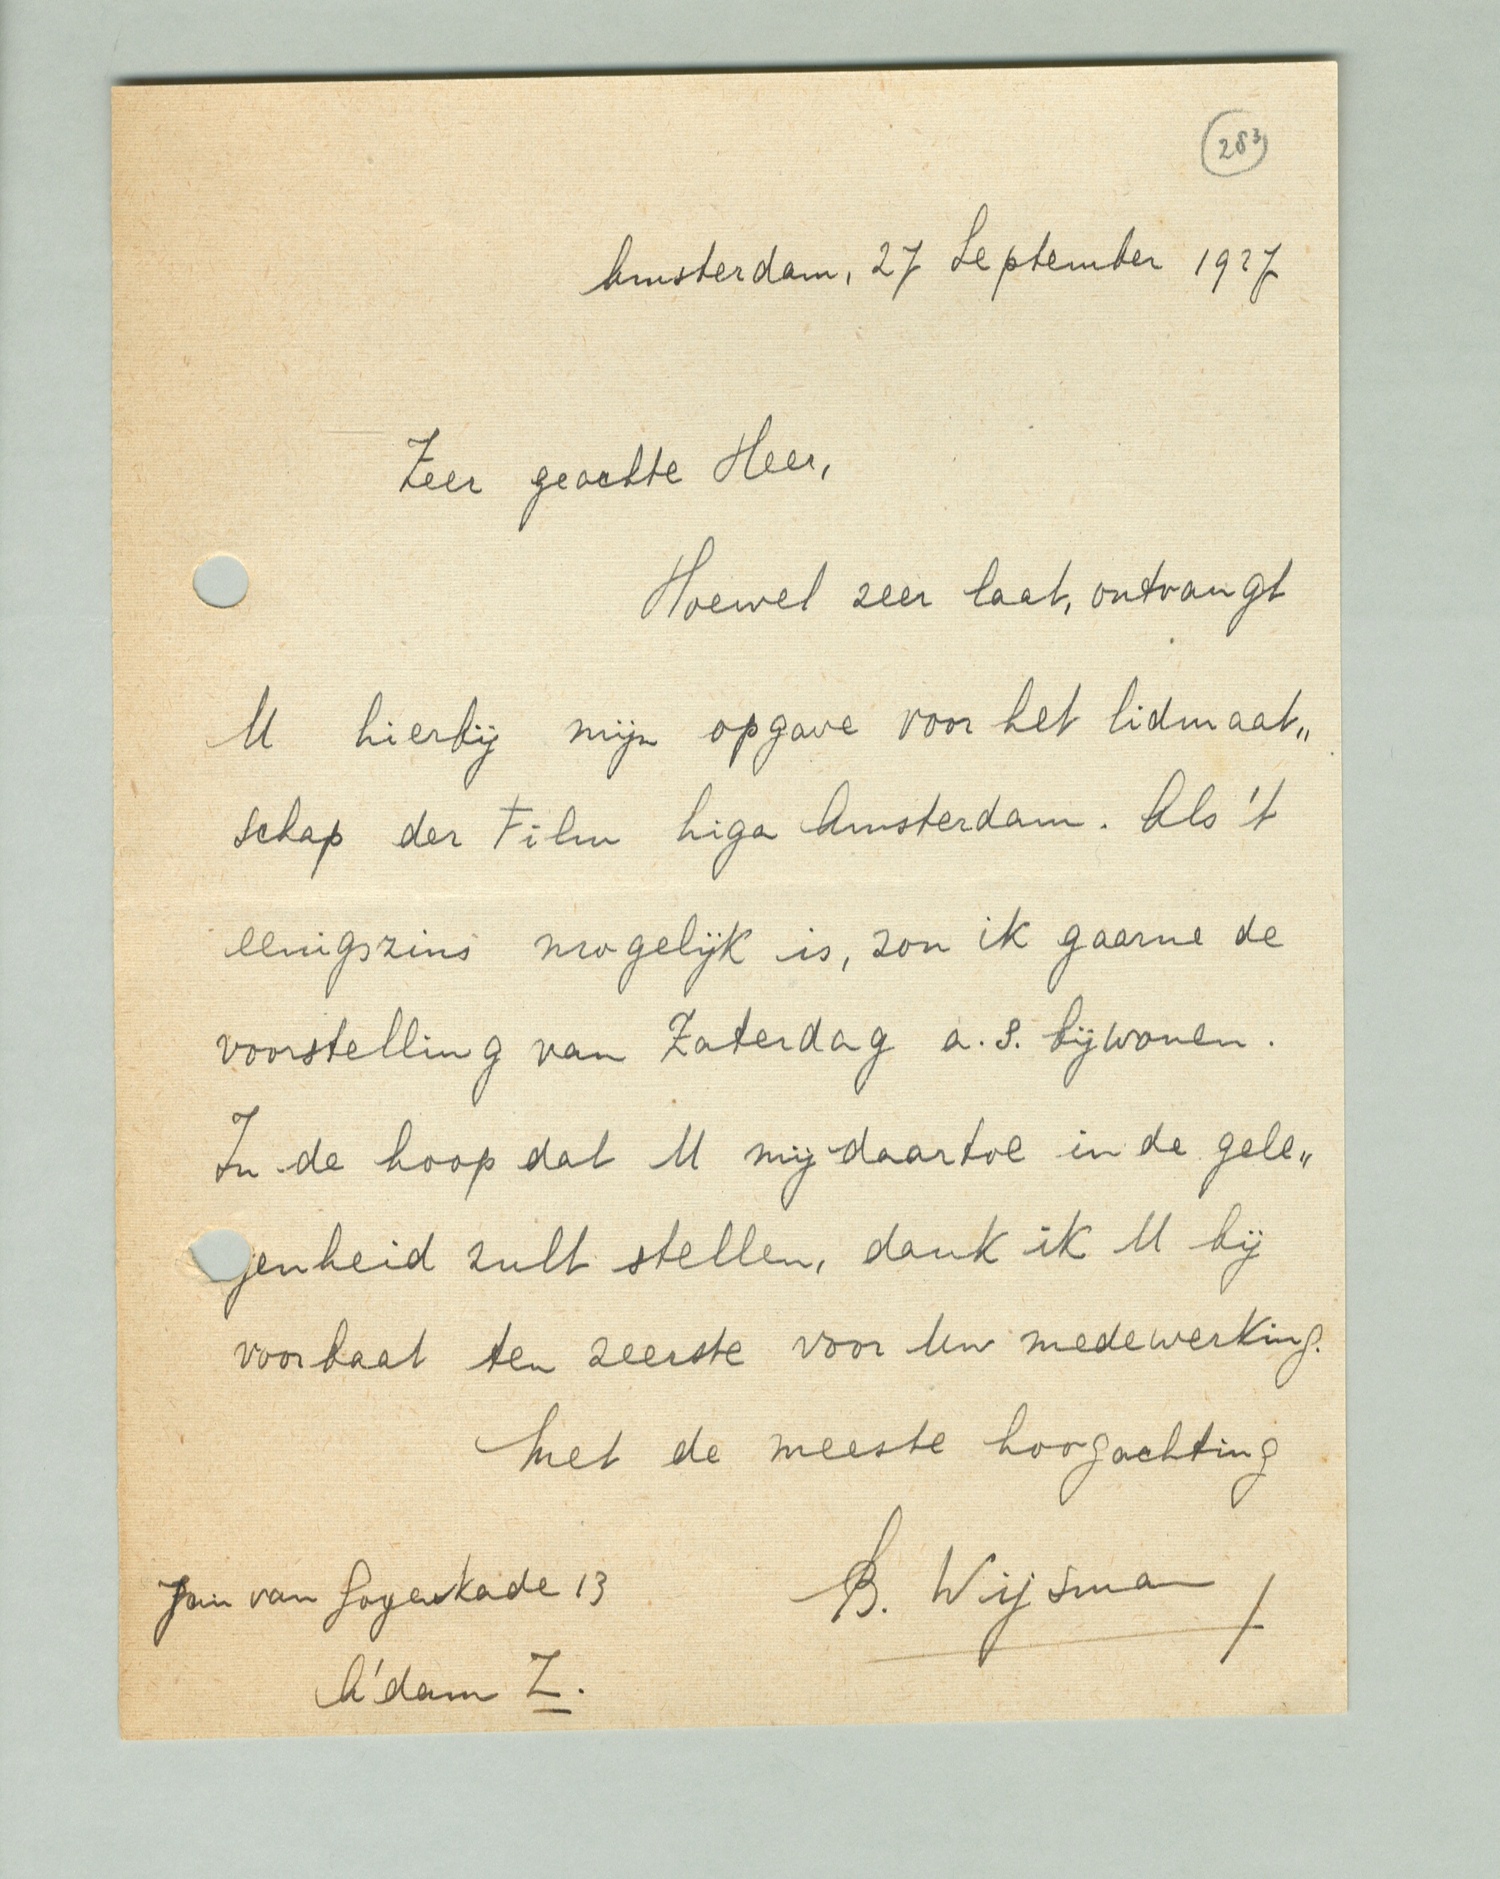 283
Amsterdam, 27 September 1927
Zeer geachte Heer,
Hoewel zeer laat, ontvangt
U hierbij mijn opgave voor het lidmaat„
schap der Film liga Amsterdam. Als 't
eenigszins mogelijk is, zou ik gaarne de
voorstelling van Zaterdag a.s. bijwonen.
In de hoop dat U mij daartoe in de gele„
genheid zult stellen, dank ik U bij
voorbaat ten zeerste voor Uw medewerking.
Met de meeste hoogachting
B. Wijsman
Jan van Goyenkade 13
A'dam Z.